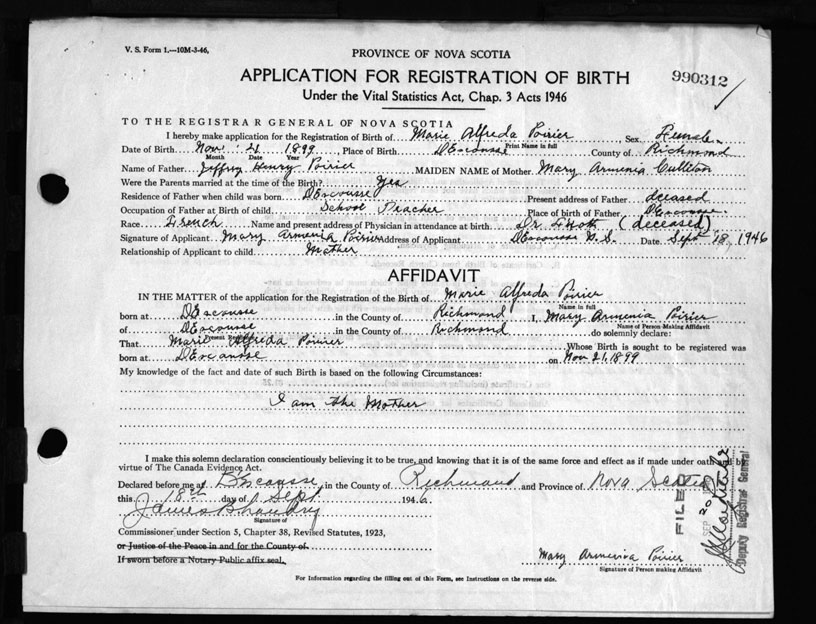 V. S. Form 1.—10M-3-46.
PROVINCE OF NOVA SCOTIA
APPLICATION FOR REGISTRATION OF BIRTH
990312
Under the Vital Statistics Act, Chap. 3 Acts 1946
TO THE REGISTRAR GENERAL OF NOVA SCOTIA
I hereby make application for the Registration of Birth of Marie Alfreda Poirier Sex Female
Print Name in full
Date of Birth Nov. 21 1899 Place of Birth DEscousse County of Richmond
Month Date Year
Name of Father Jeffrey Henry Poirier MAIDEN NAME of Mother Mary Armenia
Were the Parents married at time of the Birth? Yes
Residence of Father when child was born DEscousse Present address of Father deceased
Occupation of Father at Birth of child School Teacher Place of birth of Father DEscousse
Race French Name and present address of Physician in attendance at birth Dr (deceased)
Signature of Applicant Mary Armenia Poirier Address of Applicant DEscousse N.S. Date Sept 18 1946
Relationship of Applicant to child Mother
AFFIDAVIT
IN THE MATTER of the application for the Registration of the Birth of Marie Alfreda Poirier
Name in full
born at DEscousse in the County of Richmond I, Mary Armenia Poirier
Name of Person Making Affidavit
of DEscousse in the County of Richmond do solemnly declare:
That Marie Alfreda Poirier Whose Birth is sought to be registered was
born at DEscousse on Nov 21, 1899
My knowledge of the fact and date of such Birth is based on the following Circumstances:
I am the Mother
I make this solemn declaration conscientiously believing it to be true, and knowing that it is of the same force and effect as if made under oath by
virtue of The Canada Evidence Act.
Declared before me at DEscousse in the County of Richmond and Province of Nova Scotia
this 18th day of Sept 1946
Signature of
Commissioner under Section 5, Chapter 38, Revised Statutes, 1923,
or Justice of the Peace in and for the County of
If sworn before a Notary Public affix seal,
Mary Armenia Poirier
Signature of Person making Affidavit
For Information regarding the filling out of this Form, see Instructions on the reverse side.
FILED
SEP 20
Deputy Registrar General